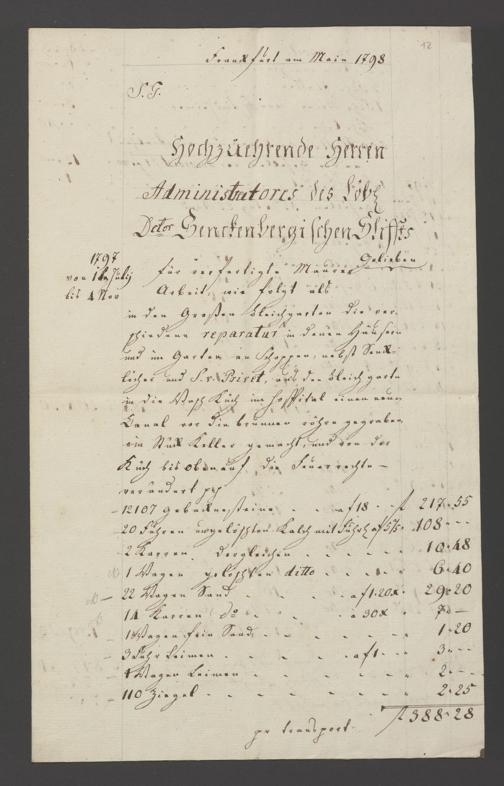 12
Frankfurt am Main 1798
S. T.
Hochzuehrende Herren
Administratores des Löbl
Dctor Senckenbergischen Stiffts
Gelieben
1797
von 1ten July
bis 4 Nov
für verfertigte Maurer
Arbeit, wie folgt als
in den Großen bleichgarten die ver¬
schiedene reparatur in denen Häusern
und im Garten an Schoppen, nebst Senk¬
löcher und S. v. Privet, aus den bleichgarten
in die Wasch Küch im Hospital einen neuen
Canal vor die brunnen röhre gegraben,
ein Stück Keller gemacht, und von der
Küch bis oben auf die Feuerrechte
verändert
12107 gebackensteine - - a f 18 - f 217-55
20 Fuhren ungelöschten Kalch mit Fuhrl. a f 5⅖ - 108 - -
2 Karren dergleichen - - - 10-48
1 Wagen gelöschten ditto - - - 6-40
22 Wagen Sand - - - a f 1.20x - 29-20
14 Karren do - - - a 30x - 7 -
1 Wagen fein Sand - - - 1-20
3 Fuhr Leimen - - - a f 1 - 3 - -
1 Wagen Leimen - - - 2 - -
110 Ziegel - - - 2-25
f 388-28
pr transport